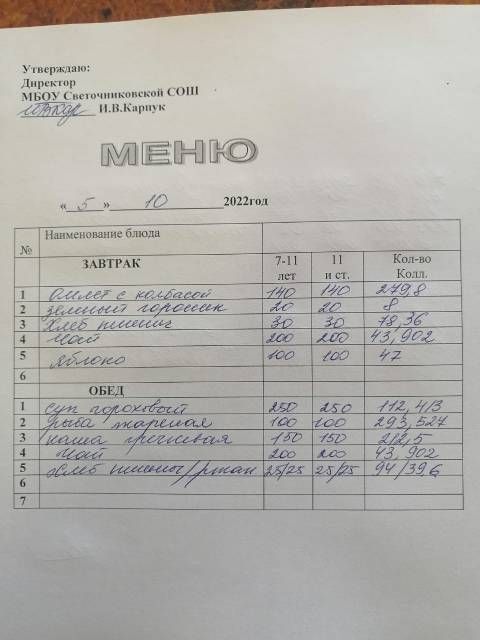 Утверждаю:
Директор
МБОУ Светочниковской СОШ
И.В.Карпук
МЕНЮ
« 5 » 10 2022год
№ Наименование блюда
ЗАВТРАК 7-11 лет 11 и ст. Кол-во Колл.
1 Омлет с колбасой 140 140 279,8
2 зеленый горошек 20 20 8
3 Хлеб пшенич 30 30 78,36
4 Чай 200 200 43,902
5 Яблоко 100 100 47
6
ОБЕД
1 суп гороховый 250 250 112,4/3
2 рыба жареная 100 100 293,527
3 каша гречневая 150 150 212,5
4 Чай 200 200 43,902
5 Хлеб пшенич/ржан 25/25 25/25 94/39,6
6
7